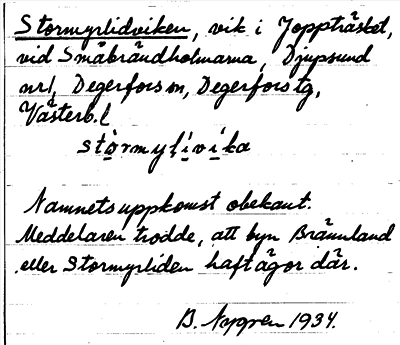 Stormyrlidviken, vik i Joppträsket,
vid Småbrändholmarna, Djupsund
nr 1, Degerfors sn, Degerfors tg,
Västerb. l
stòrmyl̀ivìka
Namnets uppkomst obekant.
Meddelaren trodde, att byn Brännland
eller Stormyrliden haft ägor där.
B. Nygren 1934.